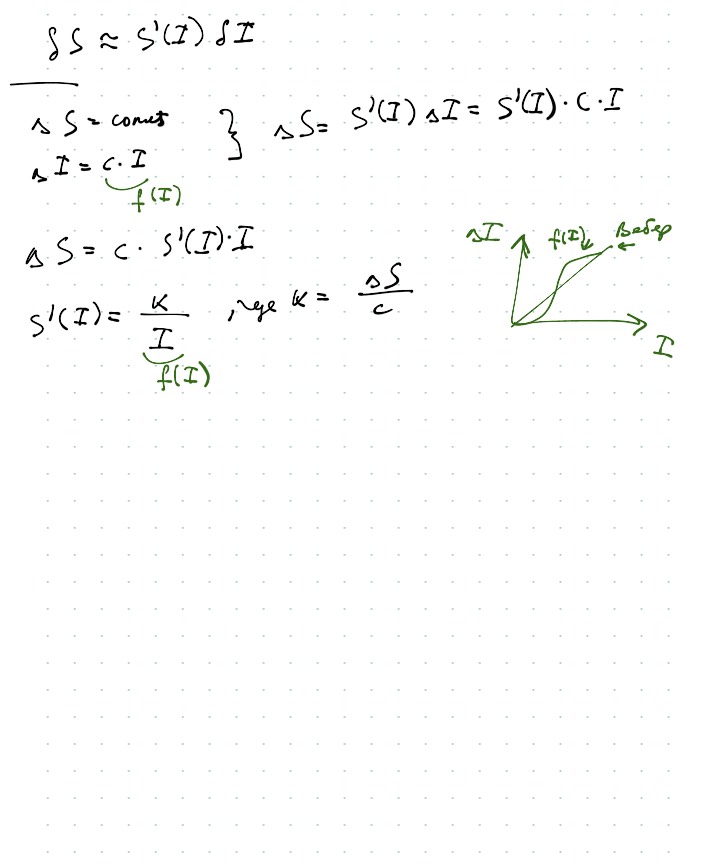 δS ≈ S'(I) δI
ΔS = const } ΔS = S'(I) ΔI = S'(I) · C · I
ΔI = c · I
f(I)
ΔS = c · S'(I) · I
S'(I) = K / I , где K = ΔS / c
f(I)
ΔI f(I) Вебер
I